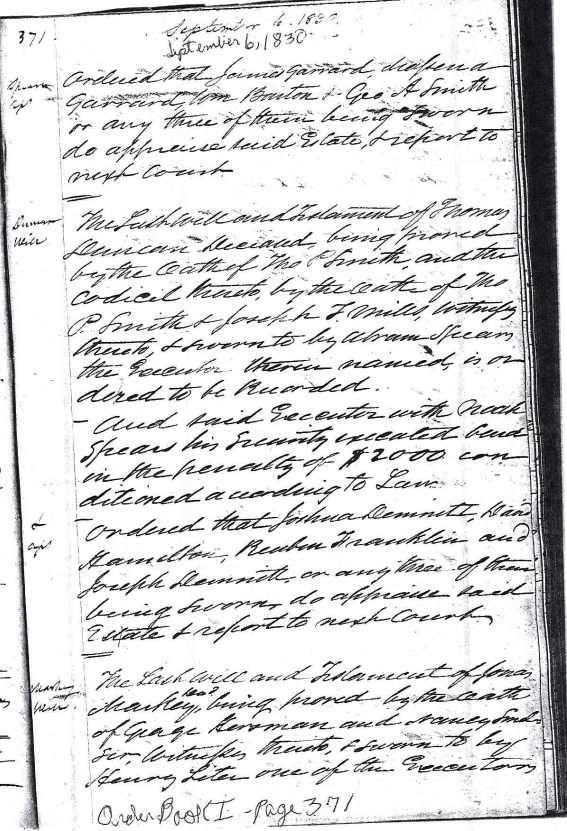 371
September 6, 1830
September 6, 1830
Ordered that James Garrard,
Garrard, Wm Barton & Geo A Smith
or any three of them being sworn
do appraise said Estate, & report to
next Court
Duncan
Will
The Last Will and Testament of Thomas
Duncan Deceased, being proved
by the Oath of Tho P Smith, and the
codicil thereto, by the Oath of Tho
P Smith & Joseph F. Mills, Witnesses
thereto, & sworn to by Abram Spears
the Executor therein named, is or
dered to be Recorded.
- And said Executor with Noah
Spears his Security executed bond
in the penalty of $2000 con
ditioned according to Law.
& 
Apt
- Ordered that Joshua Demmitt,
Hamilton, Reuben Franklin and
Joseph Demmitt, or any three of them
being sworn, do appraise said
Estate & report to next Court
Will
The Last Will and Testament of Jonas
Markey decd being proved by the Oath
of George and Nancy
Witnesses thereto, & sworn to by
Henry Liter one of the Executors
Order Book I - Page 371